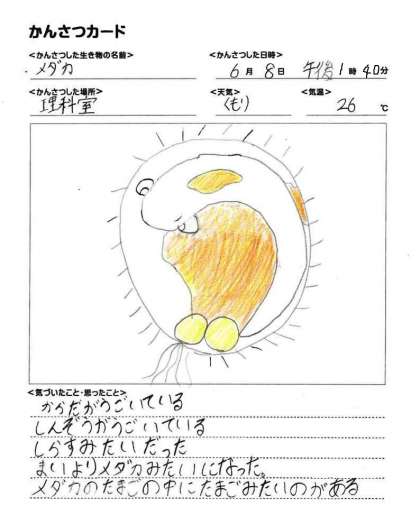 かんさつカード
<かんさつした生き物の名前> <かんさつした日時>
メダカ 6月8日 午後1時40分
<かんさつした場所> <天気> <気温>
理科室 くもり 26℃
<気づいたこと・思ったこと>
からだがうごいている
しんぞうがうごいている
しらすみたいだった
まいよりメダカみたいになった。
メダカのたまごの中にたまごみたいのがある